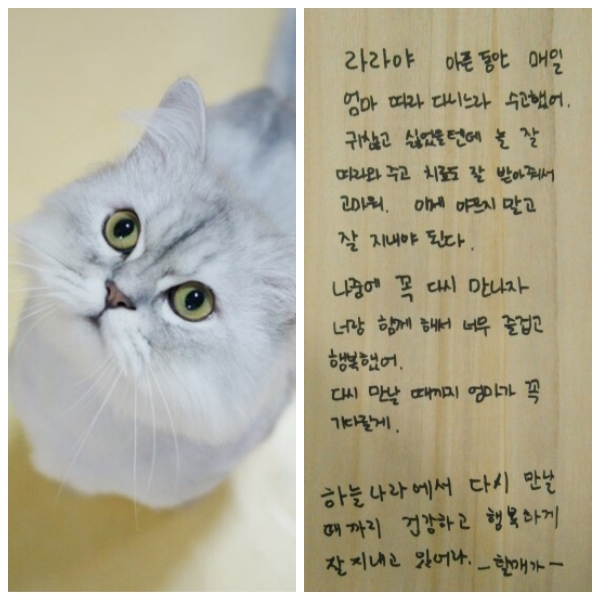 라라야 아픈 동안 매일
엄마 따라 다니느라 수고했어.
귀찮고 싫었을텐데 늘 잘
따라와 주고 치료도 잘 받아줘서
고마워. 이제 아프지 말고
잘 지내야 된다.
나중에 꼭 다시 만나자
너랑 함께 해서 너무 즐겁고
행복했어.
다시 만날 때까지 엄마가 꼭
기다릴게.
하늘나라에서 다시 만날
때까지 건강하고 행복하게
잘 지내고 있어라. -할매가-